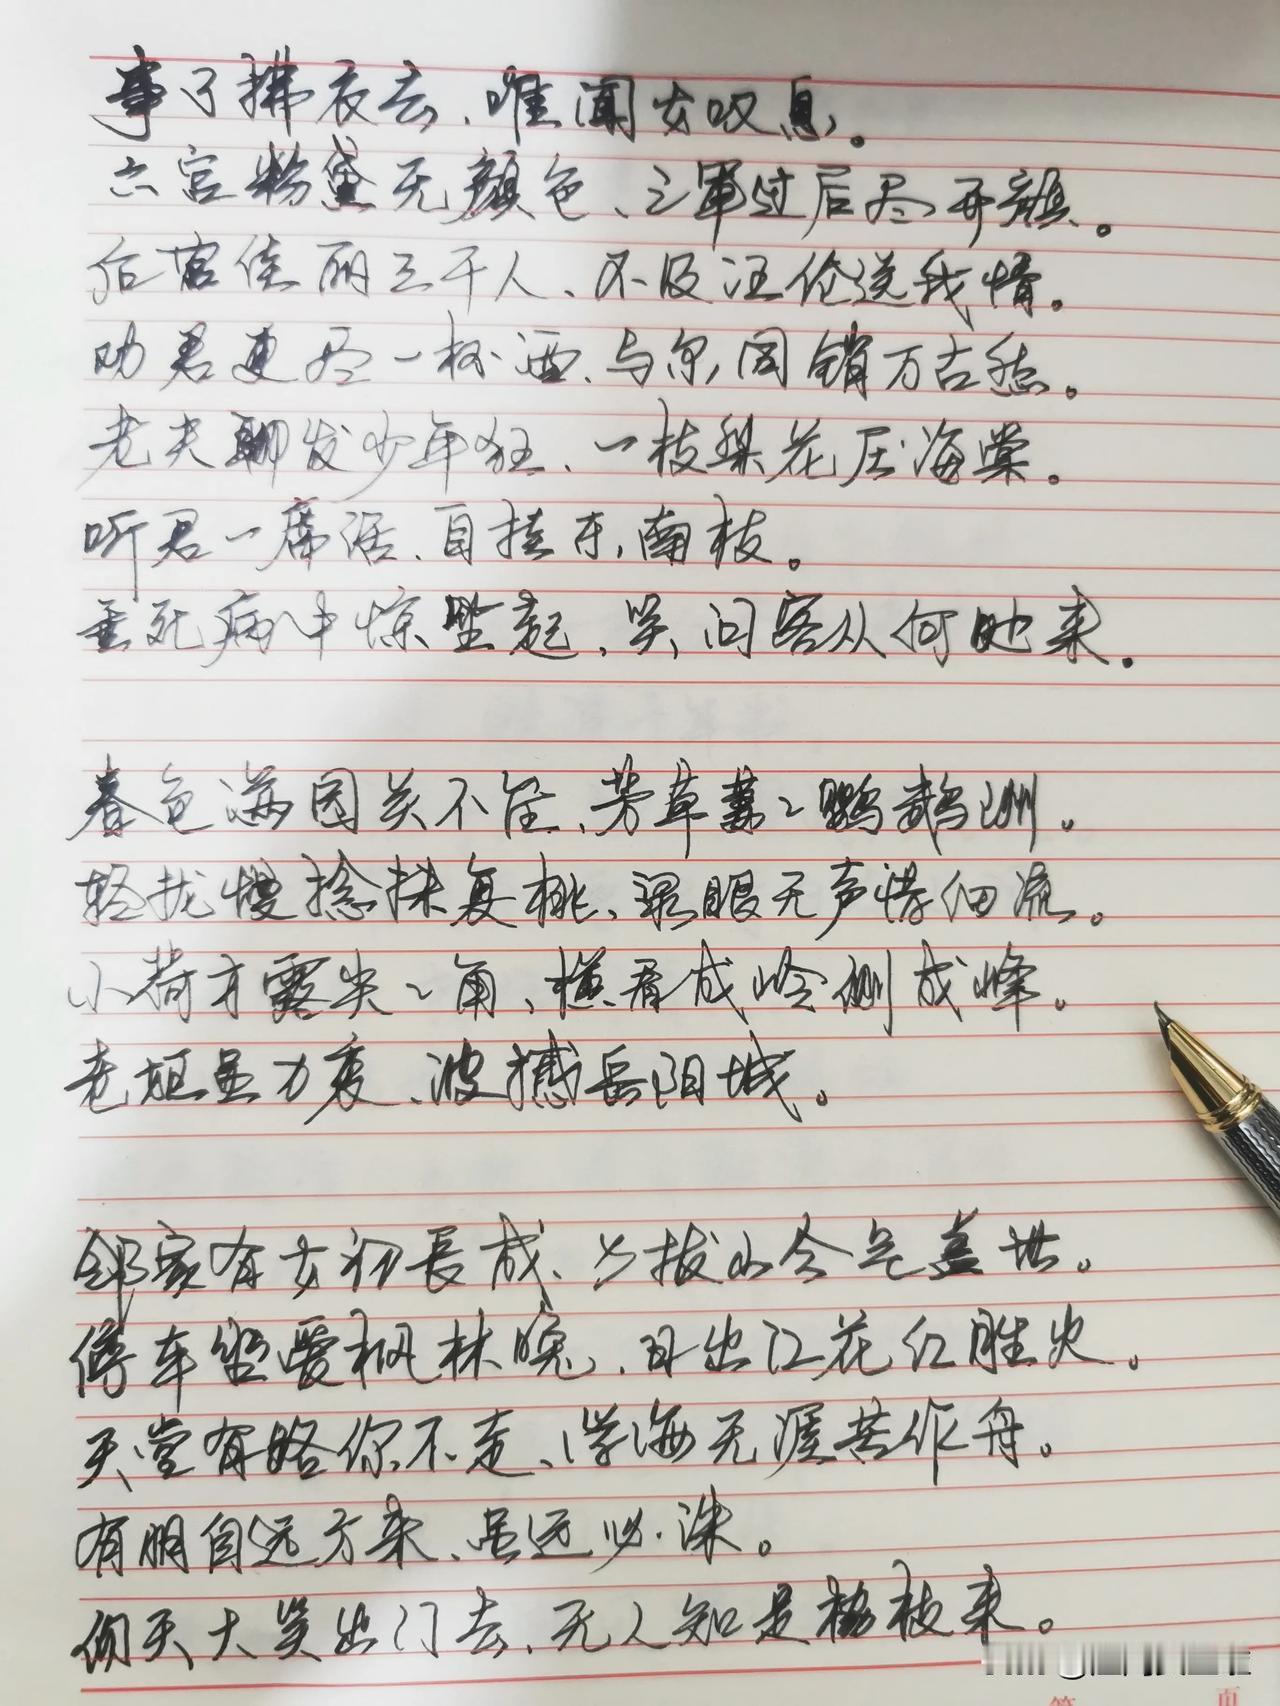 事了拂衣去，唯闻女叹息。
六宫粉黛无颜色，三军过后尽开颜。
后宫佳丽三千人，不及汪伦送我情。
劝君更尽一杯酒，与尔同销万古愁。
老夫聊发少年狂，一枝梨花压海棠。
听君一席话，自挂东南枝。
垂死病中惊坐起，笑问客从何处来。
春色满园关不住，芳草萋萋鹦鹉洲。
轻拢慢捻抹复挑，泉眼无声惜细流。
小荷才露尖尖角，横看成岭侧成峰。
老妪虽力衰，波撼岳阳城。
邻家有女初長成，力拔山兮气盖世。
停车坐爱枫林晚，日出江花红胜火。
天堂有路你不走，学海无涯苦作舟。
有朋自远方来，虽远必诛。
仰天大笑出门去，无人知是荔枝来。
第 页